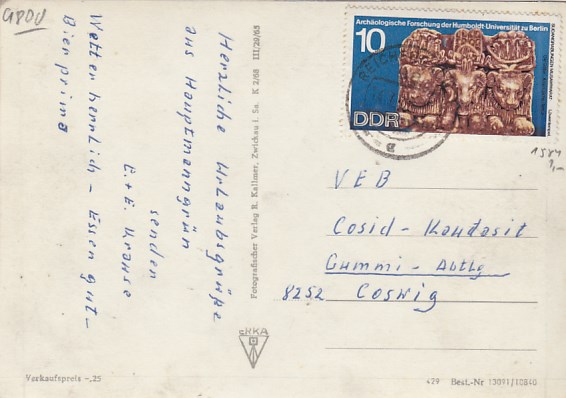 9804
Herzliche Urlaubsgrüße
aus Hauptmannsgrün
senden
E. + E. Krause
Wetter herrlich – Essen gut –
Bier prima
Fotografischer Verlag R. Kallmer, Zwickau i. Sa. K 2/68 III/29/65
ERKA
Verkaufspreis -,25
Archäologische Forschung der Humboldt-Universität zu Berlin
10
DDR
REICHENBACH
1584
VEB
Cosid-Kautasit
Gummi-Abtlg
8252 Coswig
429 Best.-Nr 13091/10840